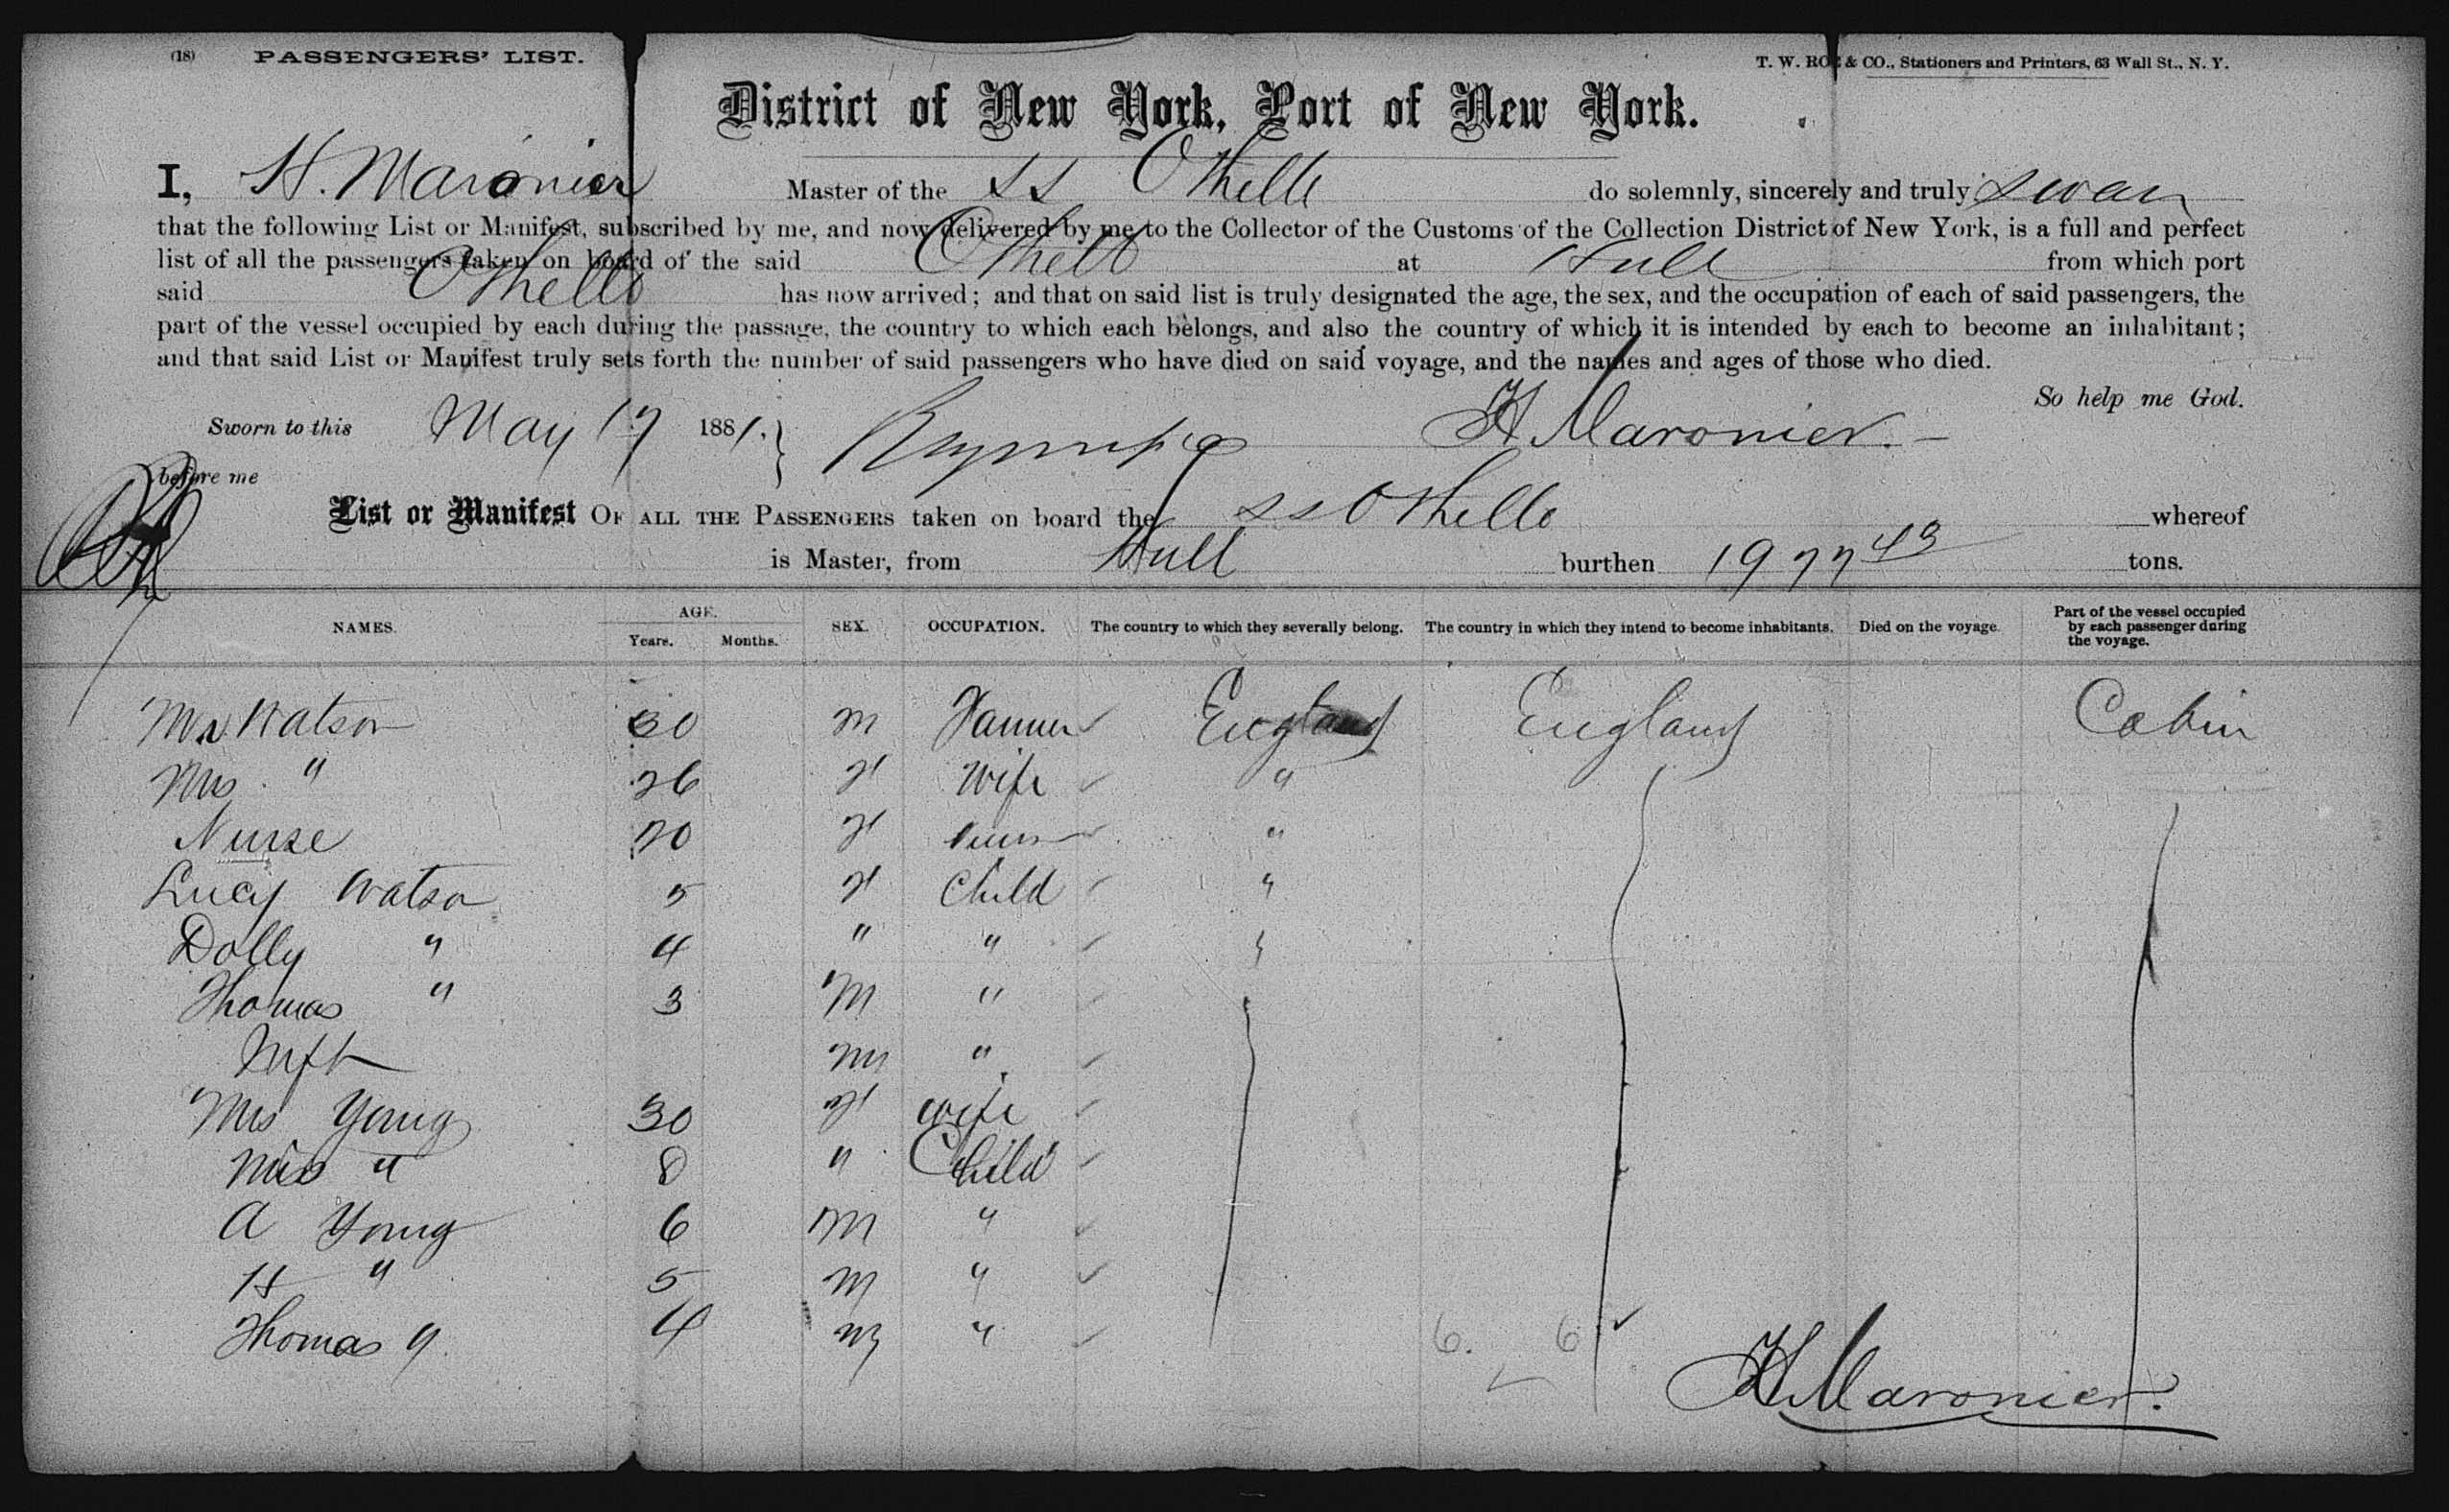 (18) PASSENGERS' LIST.
T. W. ROE & CO., Stationers and Printers, 63 Wall St., N. Y.
District of New York, Port of New York.
I, H. Maronier Master of the SS Othello do solemnly, sincerely and truly swear
that the following List or Manifest, subscribed by me, and now delivered by me to the Collector of the Customs of the Collection District of New York, is a full and perfect
list of all the passengers taken on board of the said Othello at Hull from which port
said Othello has now arrived; and that on said list is truly designated the age, the sex, and the occupation of each of said passengers, the
part of the vessel occupied by each during the passage, the country to which each belongs, and also the country of which it is intended by each to become an inhabitant;
and that said List or Manifest truly sets forth the number of said passengers who have died on said voyage, and the names and ages of those who died.
So help me God.
Sworn to this May 17 1881. H Maronier.
before me
List or Manifest OF ALL THE PASSENGERS taken on board the SS Othello whereof
is Master, from Hull burthen 1977 43 tons.
NAMES. AGE. Years. Months. SEX. OCCUPATION. The country to which they severally belong. The country in which they intend to become inhabitants. Died on the voyage. Part of the vessel occupied by each passenger during the voyage.
Mr Watson 30 M Farmer England England Cabin
Mrs " 26 F Wife "
Nurse 20 F "
Lucy Watson 5 F Child "
Dolly " 4 " " "
Thomas " 3 M "
Inft M "
Mrs Young 30 F wife
Miss " 8 " Child
A Young 6 M "
H " 5 M "
Thomas " 4 M "
6. 6
H Maronier.